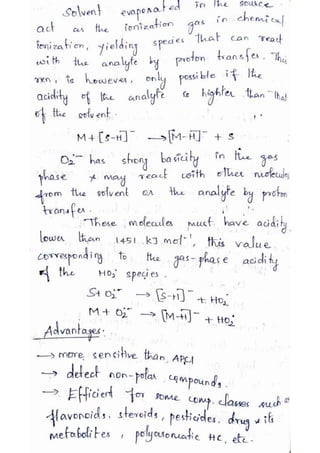 Solvent evaporated in the source
act as the ionization gas in chemical
ionization, yielding species that can react
with the analyte by proton transfer. This
rxn, is however, only possible if the
acidity of the analyte is higher than that
of the solvent.
M + [S-H]⁻ → [M-H]⁻ + S
O₂·⁻ has strong basicity in the gas
phase & may react with other molecules
from the solvent or the analyte by proton
transfer.
These molecules must have acidity
lower than 1451 kJ mol⁻¹, this value
corresponding to the gas-phase acidity
of the HO₂· species.
S + O₂·⁻ → [S-H]⁻ + HO₂·
M + O₂·⁻ → [M-H]⁻ + HO₂·
Advantages:
→ more sensitive than APCI
→ detect non-polar compounds.
→ Efficient for some comp. classes such as
flavonoids, steroids, pesticides, drug & its
metabolites, polyaromatic HC, etc.